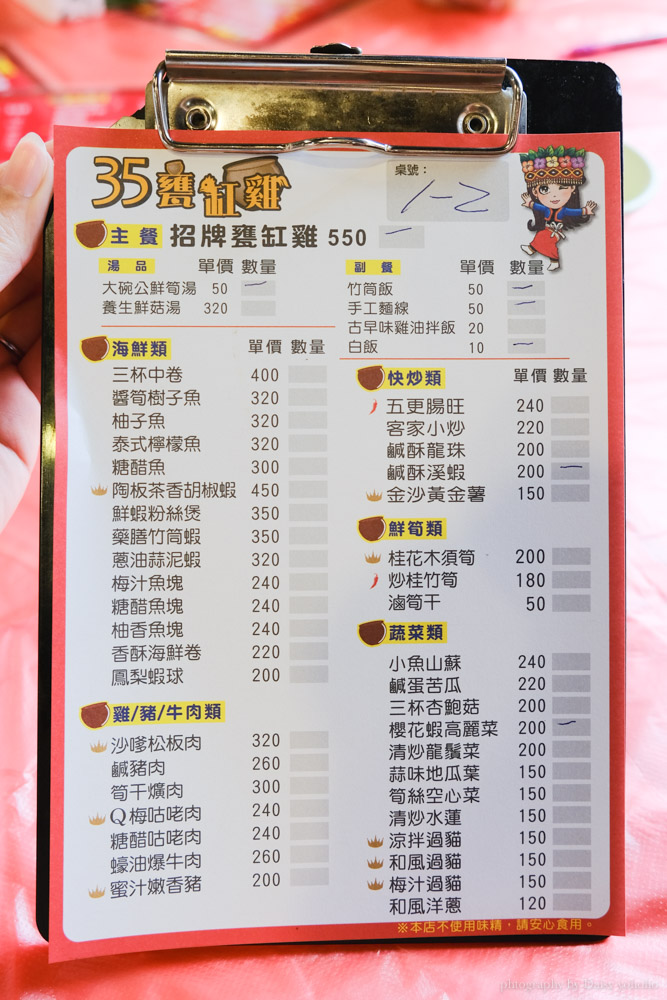 35甕缸雞
桌號：
1-2
主餐 招牌甕缸雞 550 一
湯品 單價 數量
大碗公鮮筍湯 50 一
養生鮮菇湯 320
副餐 單價 數量
竹筒飯 50 一
手工麵線 50 一
古早味雞油拌飯 20
白飯 10 一
海鮮類 單價 數量
三杯中卷 400
醬筍樹子魚 320
柚子魚 320
泰式檸檬魚 320
糖醋魚 300
陶板茶香胡椒蝦 450
鮮蝦粉絲煲 350
藥膳竹筒蝦 350
蔥油蒜泥蝦 320
梅汁魚塊 240
糖醋魚塊 240
柚香魚塊 240
香酥海鮮卷 220
鳳梨蝦球 200
雞/豬/牛肉類
沙嗲松板肉 320
鹹豬肉 260
筍干爌肉 300
Q梅咕咾肉 240
糖醋咕咾肉 240
蠔油爆牛肉 260
蜜汁嫩香豬 200
快炒類 單價 數量
五更腸旺 240
客家小炒 220
鹹酥龍珠 200
鹹酥溪蝦 200 一
金沙黃金薯 150
鮮筍類
桂花木須筍 200
炒桂竹筍 180
滷筍干 50
蔬菜類
小魚山蘇 240
鹹蛋苦瓜 220
三杯杏鮑菇 200
櫻花蝦高麗菜 200 一
清炒龍鬚菜 200
蒜味地瓜葉 150
筍絲空心菜 150
清炒水蓮 150
涼拌過貓 150
和風過貓 150
梅汁過貓 150
和風洋蔥 120
※本店不使用味精，請安心食用。
photography by